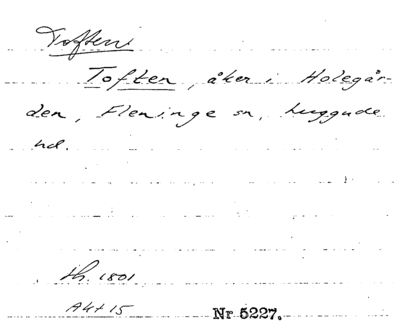 Toften
Toften, åker i Holegår-
den, Fleninge sn, Luggude
hd.
Lh. 1801
Akt 15
Nr 5227.